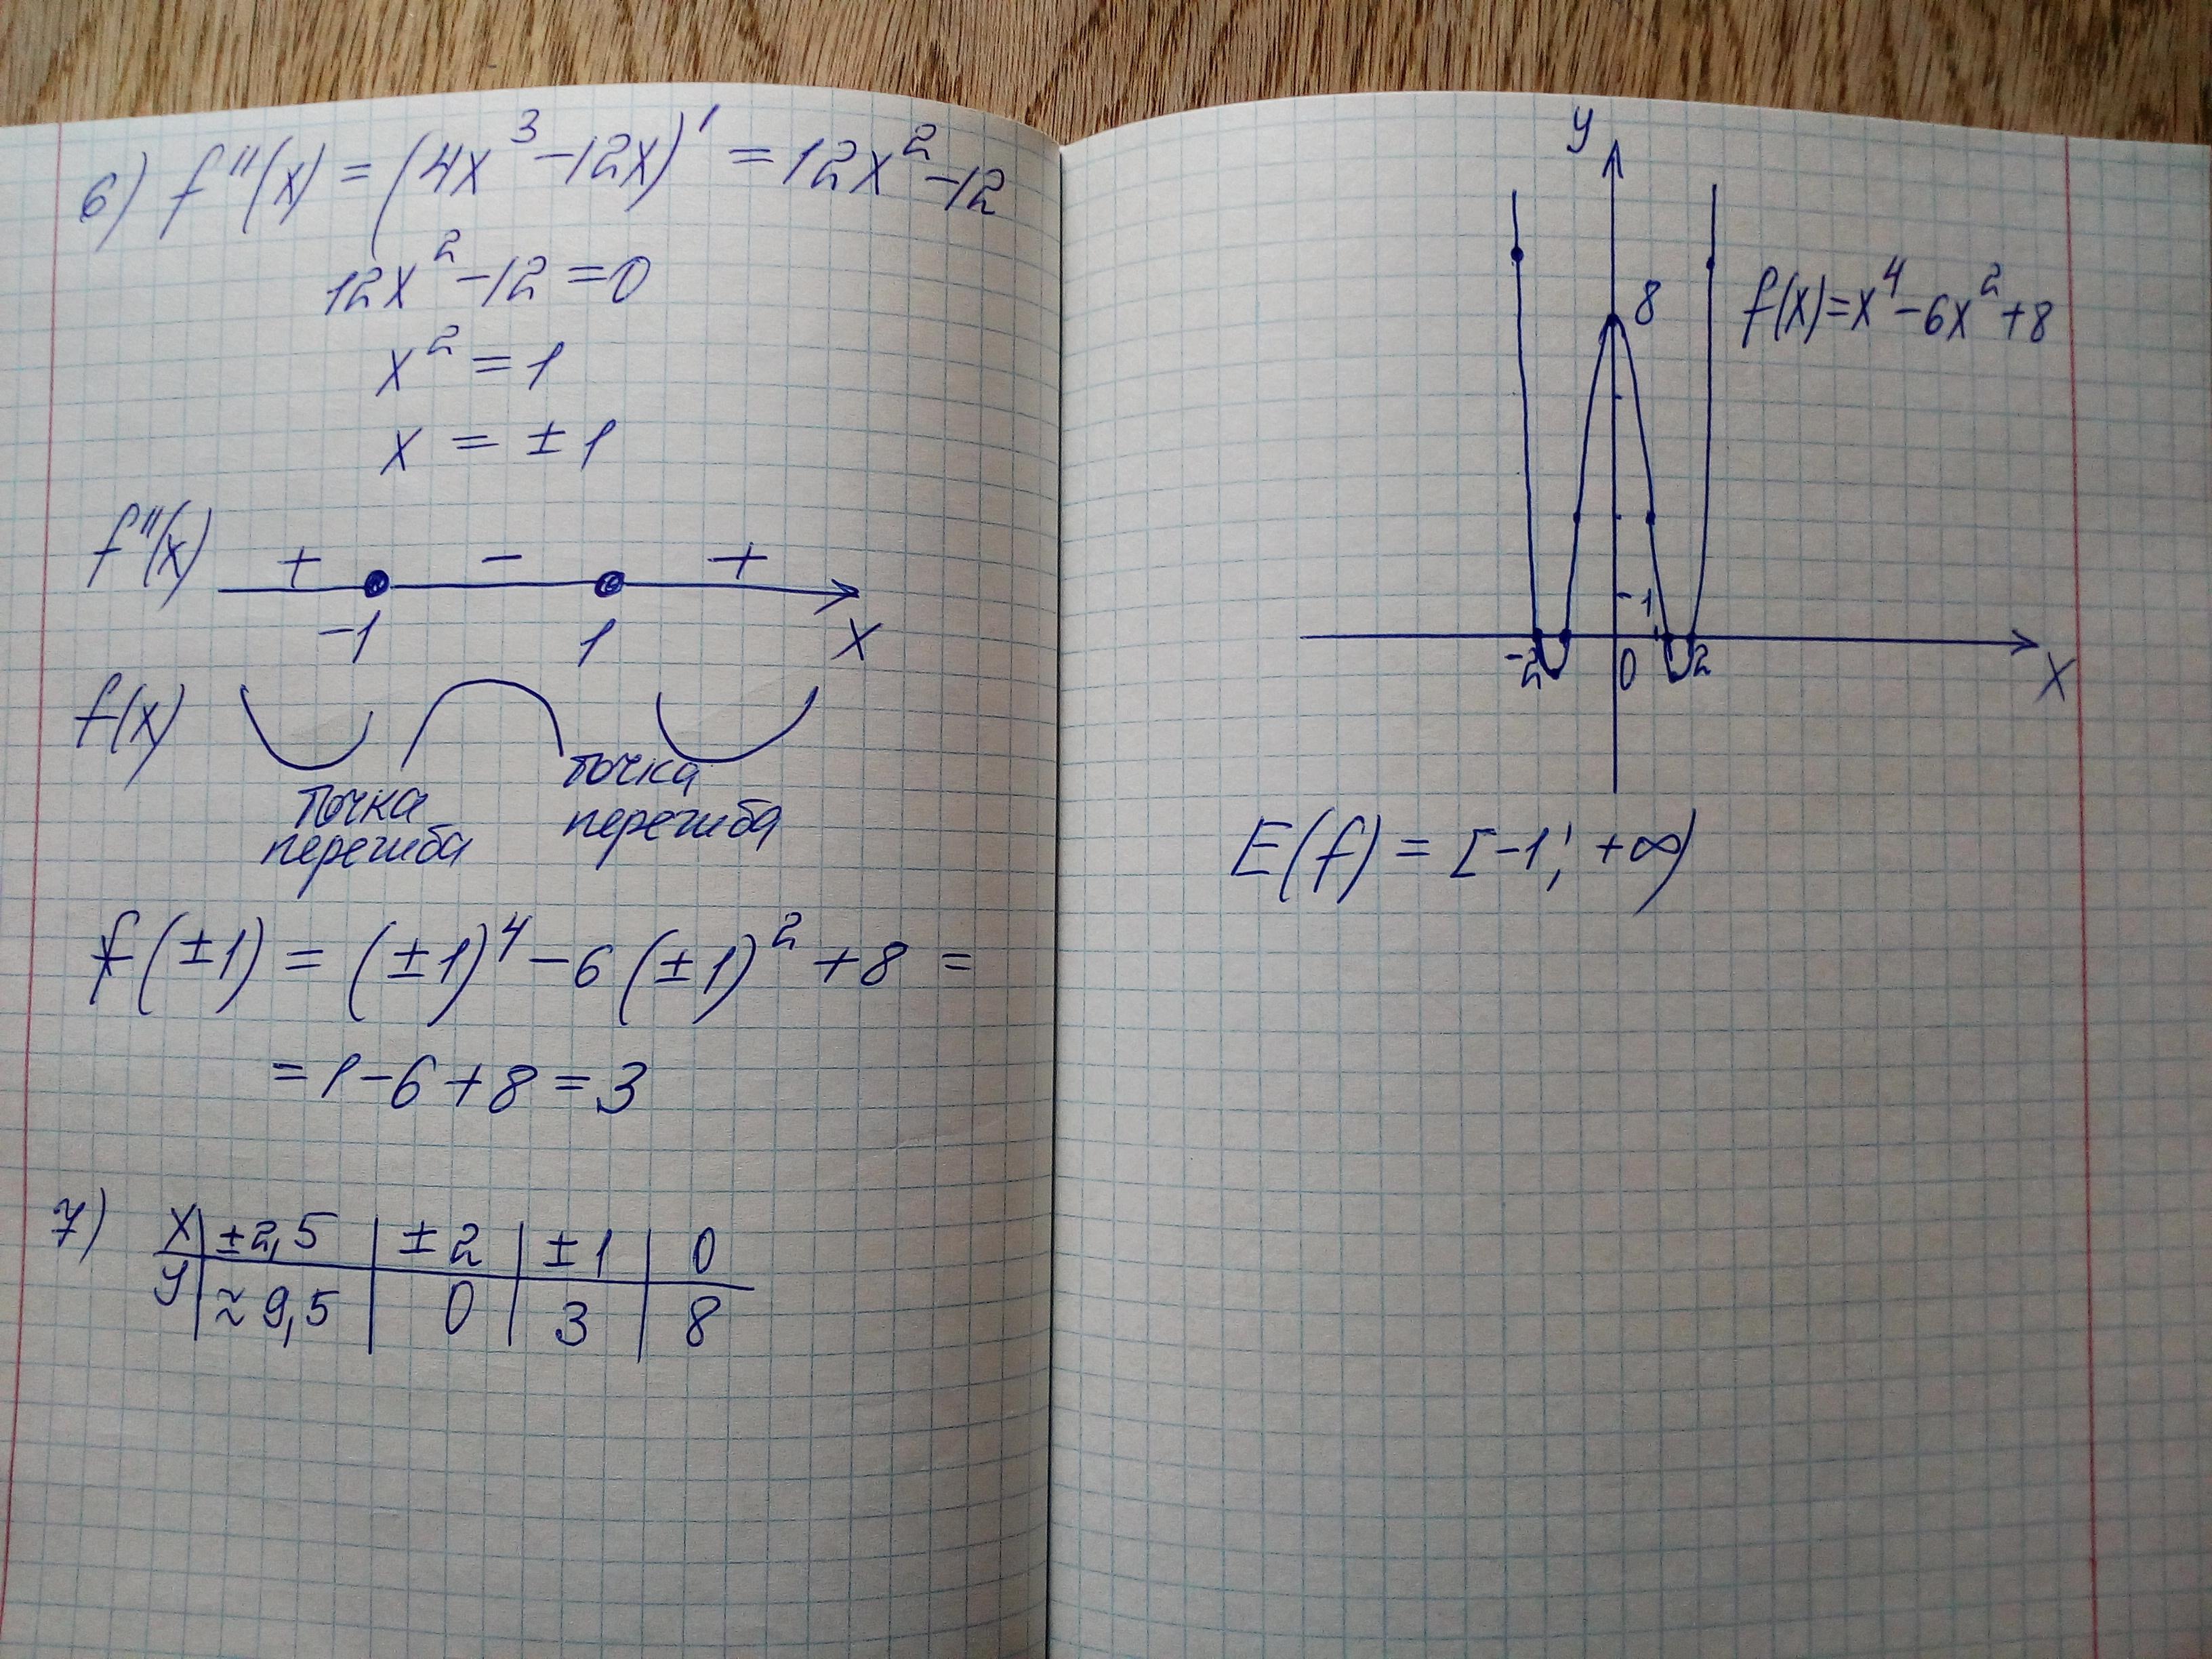 6) f''(x) = (4x³-12x)' = 12x²-12
12x²-12=0
x²=1
x = ±1
f''(x) + - +
-1 1 x
f(x)
точка перегиба
точка перегиба
f(±1) = (±1)⁴-6(±1)²+8 =
=1-6+8=3
7) x | ±2,5 | ±2 | ±1 | 0
y | ≈9,5 | 0 | 3 | 8
y
8
f(x)=x⁴-6x²+8
1
-2 0 2 x
E(f) = [-1; +∞)